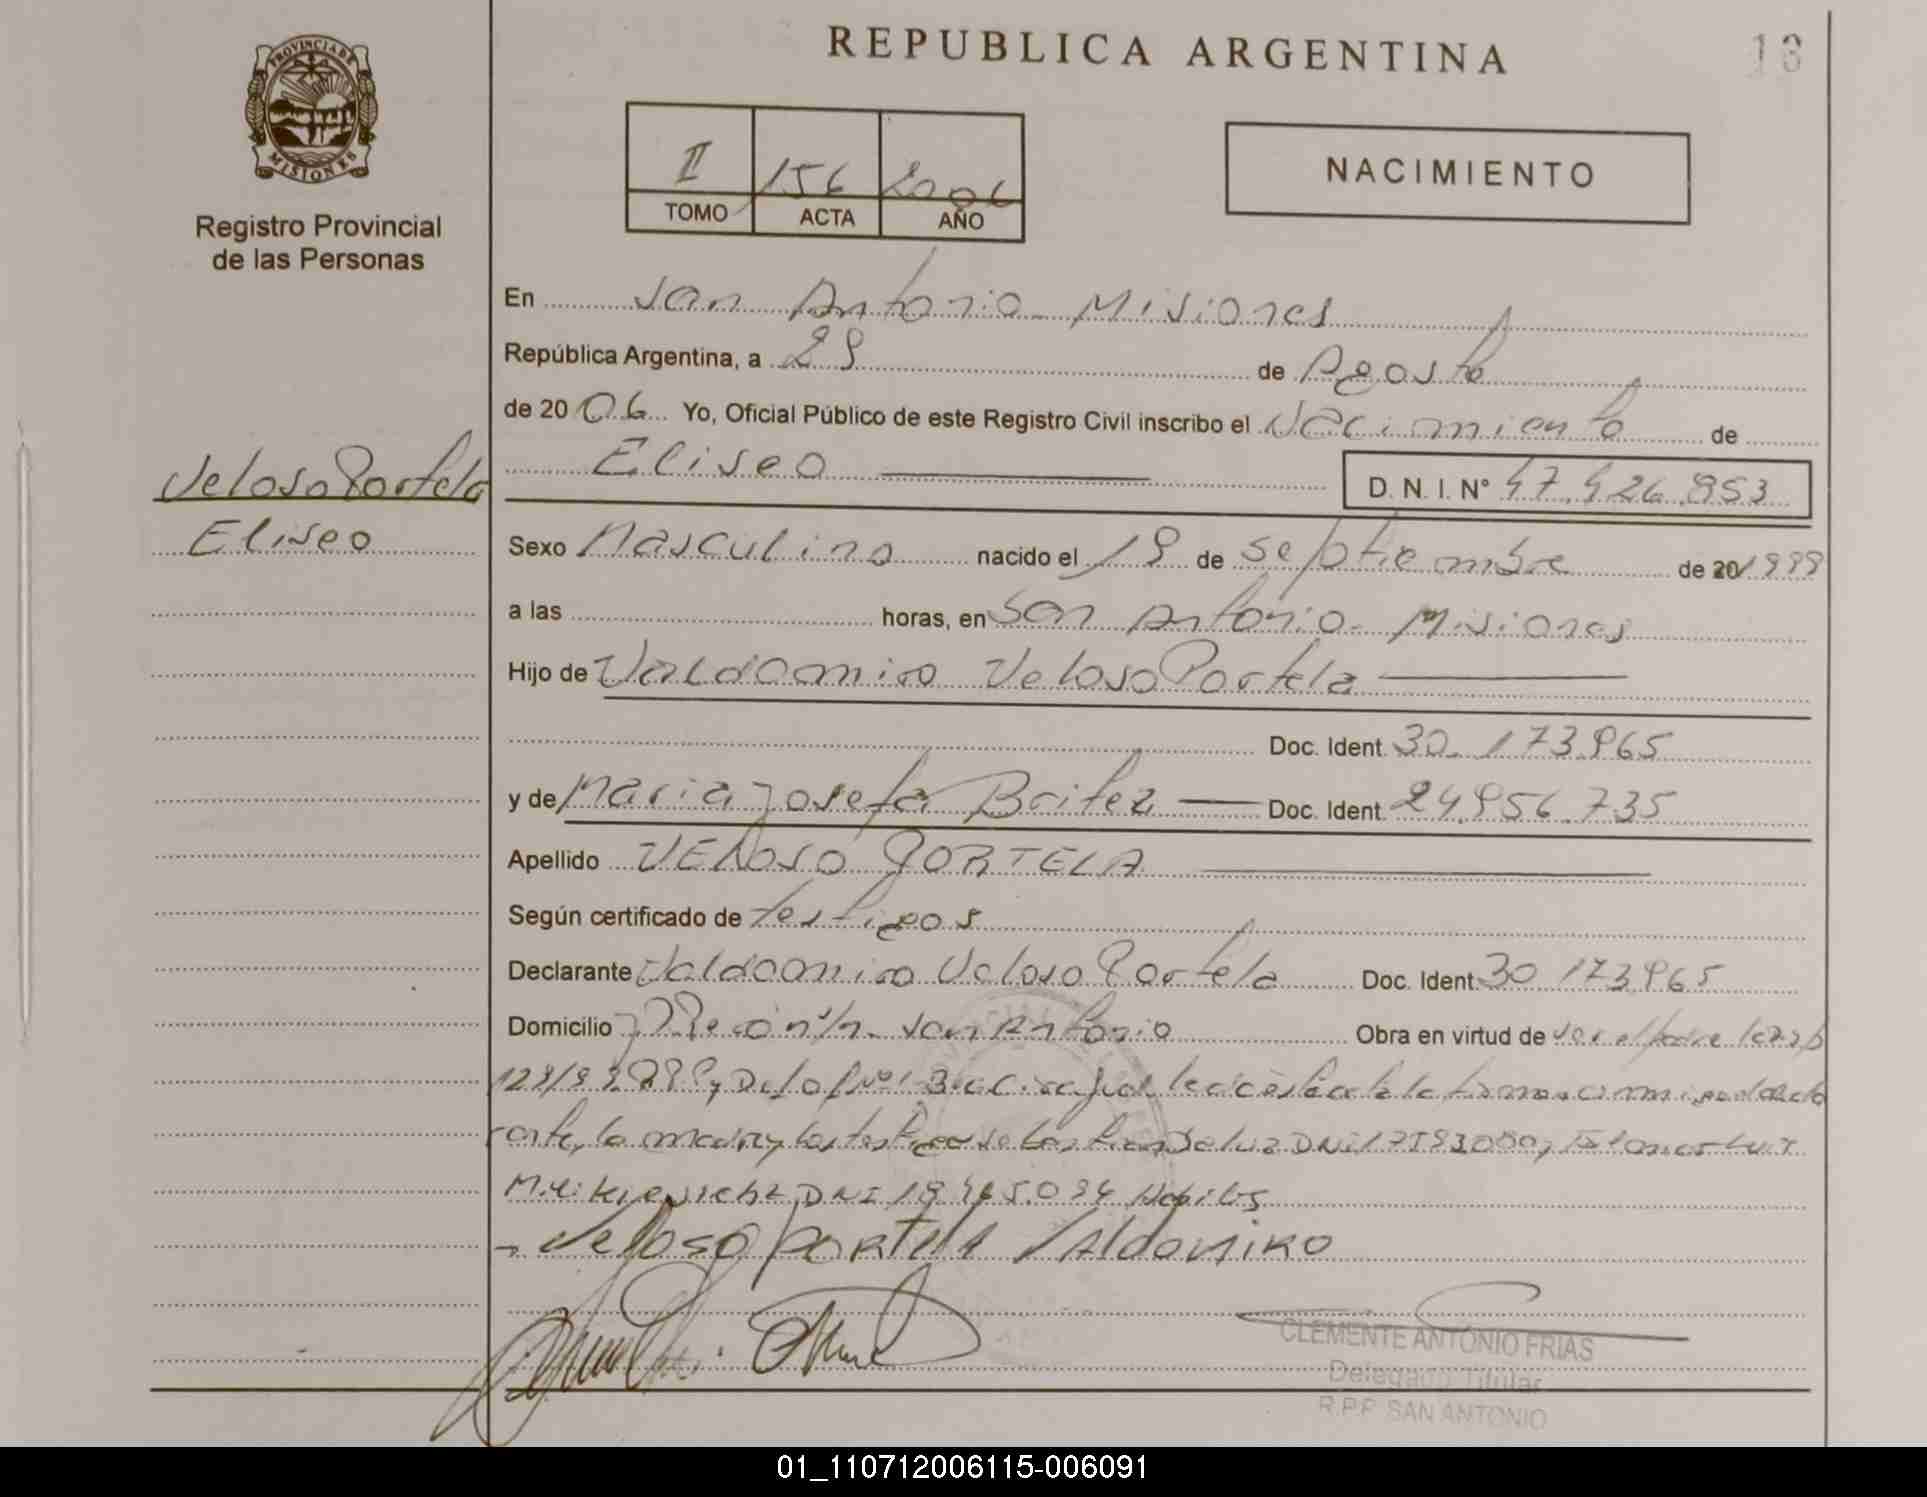 REPUBLICA ARGENTINA
13
PROVINCIA DE
MISIONES
Registro Provincial
de las Personas
II 156 2006
TOMO ACTA AÑO
NACIMIENTO
En San Antonio - Misiones
República Argentina, a 29 de Agosto
de 20 06 Yo, Oficial Público de este Registro Civil inscribo el Nacimiento de
Eliseo
D. N. I. N° 47.426.953
Veloso Portela
Eliseo
Sexo Masculino nacido el 19 de septiembre de 20 1999
a las horas, en San Antonio - Misiones
Hijo de Valdomiro Veloso Portela
Doc. Ident. 30.173.965
y de Maria Josefa Britez Doc. Ident. 24.956.735
Apellido VELOSO PORTELA
Según certificado de testigos
Declarante Valdomiro Veloso Portela Doc. Ident. 30 173.965
Domicilio San Antonio Obra en virtud de ser el padre
la madre y los testigos DNI
DNI Habiles
Veloso portela Valdomiro
CLEMENTE ANTONIO FRIAS
Delegado Titular
R.P.P. SAN ANTONIO
01_110712006115-006091